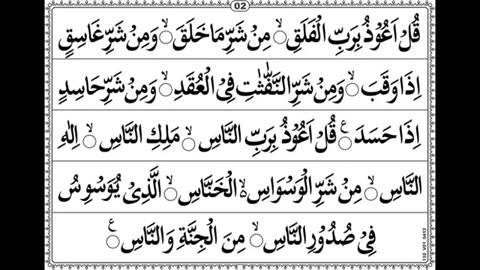 02
قُلْ اَعُوْذُ بِرَبِّ الْفَلَقِ ۙ مِنْ شَرِّ مَا خَلَقَ ۙ وَمِنْ شَرِّ غَاسِقٍ
اِذَا وَقَبَ ۙ وَمِنْ شَرِّ النَّفّٰثٰتِ فِی الْعُقَدِ ۙ وَمِنْ شَرِّ حَاسِدٍ
اِذَا حَسَدَ ۧ قُلْ اَعُوْذُ بِرَبِّ النَّاسِ ۙ مَلِكِ النَّاسِ ۙ اِلٰهِ
النَّاسِ ۙ مِنْ شَرِّ الْوَسْوَاسِ ۙ الْخَنَّاسِ ۙ الَّذِیْ یُوَسْوِسُ
فِیْ صُدُوْرِ النَّاسِ ۙ مِنَ الْجِنَّةِ وَالنَّاسِ ۧ